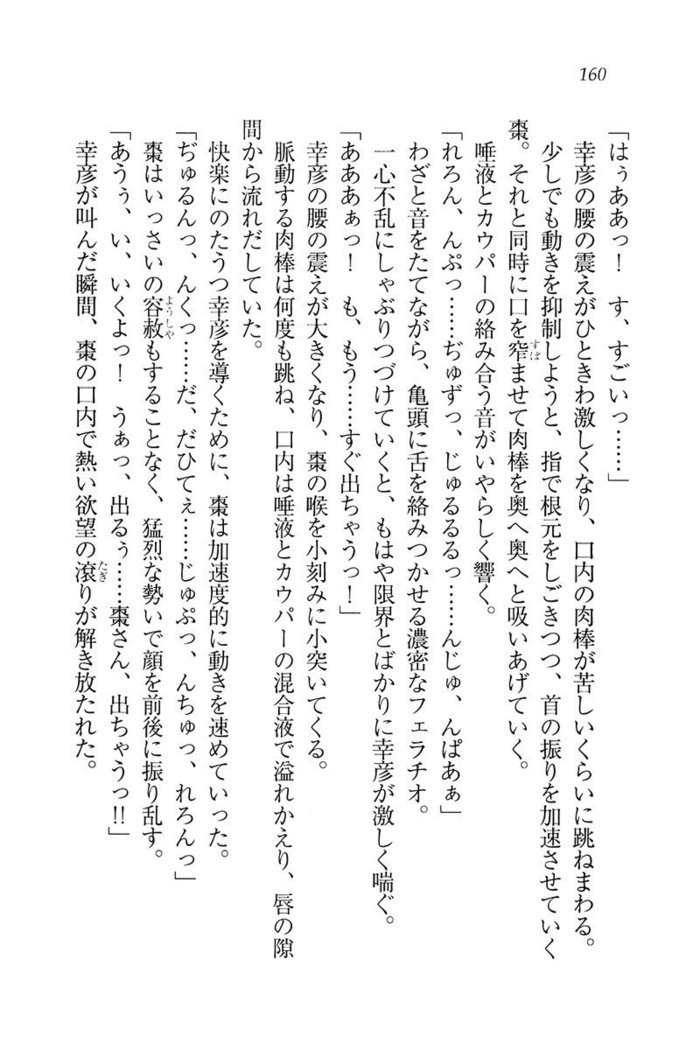 160
「はぅああっ！　す、すごいっ……」
幸彦の腰の震えがひときわ激しくなり、口内の肉棒が苦しいくらいに跳ねまわる。
少しでも動きを抑制しようと、指で根元をしごきつつ、首の振りを加速させていく
棗。それと同時に口を窄ませて肉棒を奥へ奥へと吸いあげていく。
唾液とカウパーの絡み合う音がいやらしく響く。
「れろん、んぷっ……ぢゅずっ、じゅるるるっ……んじゅ、んぱあぁ」
わざと音をたてながら、亀頭に舌を絡みつかせる濃密なフェラチオ。
一心不乱にしゃぶりつづけていくと、もはや限界とばかりに幸彦が激しく喘ぐ。
「あああぁっ！　も、もう……すぐ出ちゃうっ！」
幸彦の腰の震えが大きくなり、棗の喉を小刻みに小突いてくる。
脈動する肉棒は何度も跳ね、口内は唾液とカウパーの混合液で溢れかえり、唇の隙
間から流れだしていた。
快楽にのたうつ幸彦を導くために、棗は加速度的に動きを速めていった。
「ぢゅるんっ、んくっ……だ、だひてぇ……じゅぷっ、んちゅっ、れろんっ」
棗はいっさいの容赦もすることなく、猛烈な勢いで顔を前後に振り乱す。
「あうぅ、い、いくよっ！　うぁっ、出るぅ……棗さん、出ちゃうっ!!」
幸彦が叫んだ瞬間、棗の口内で熱い欲望の滾りが解き放たれた。